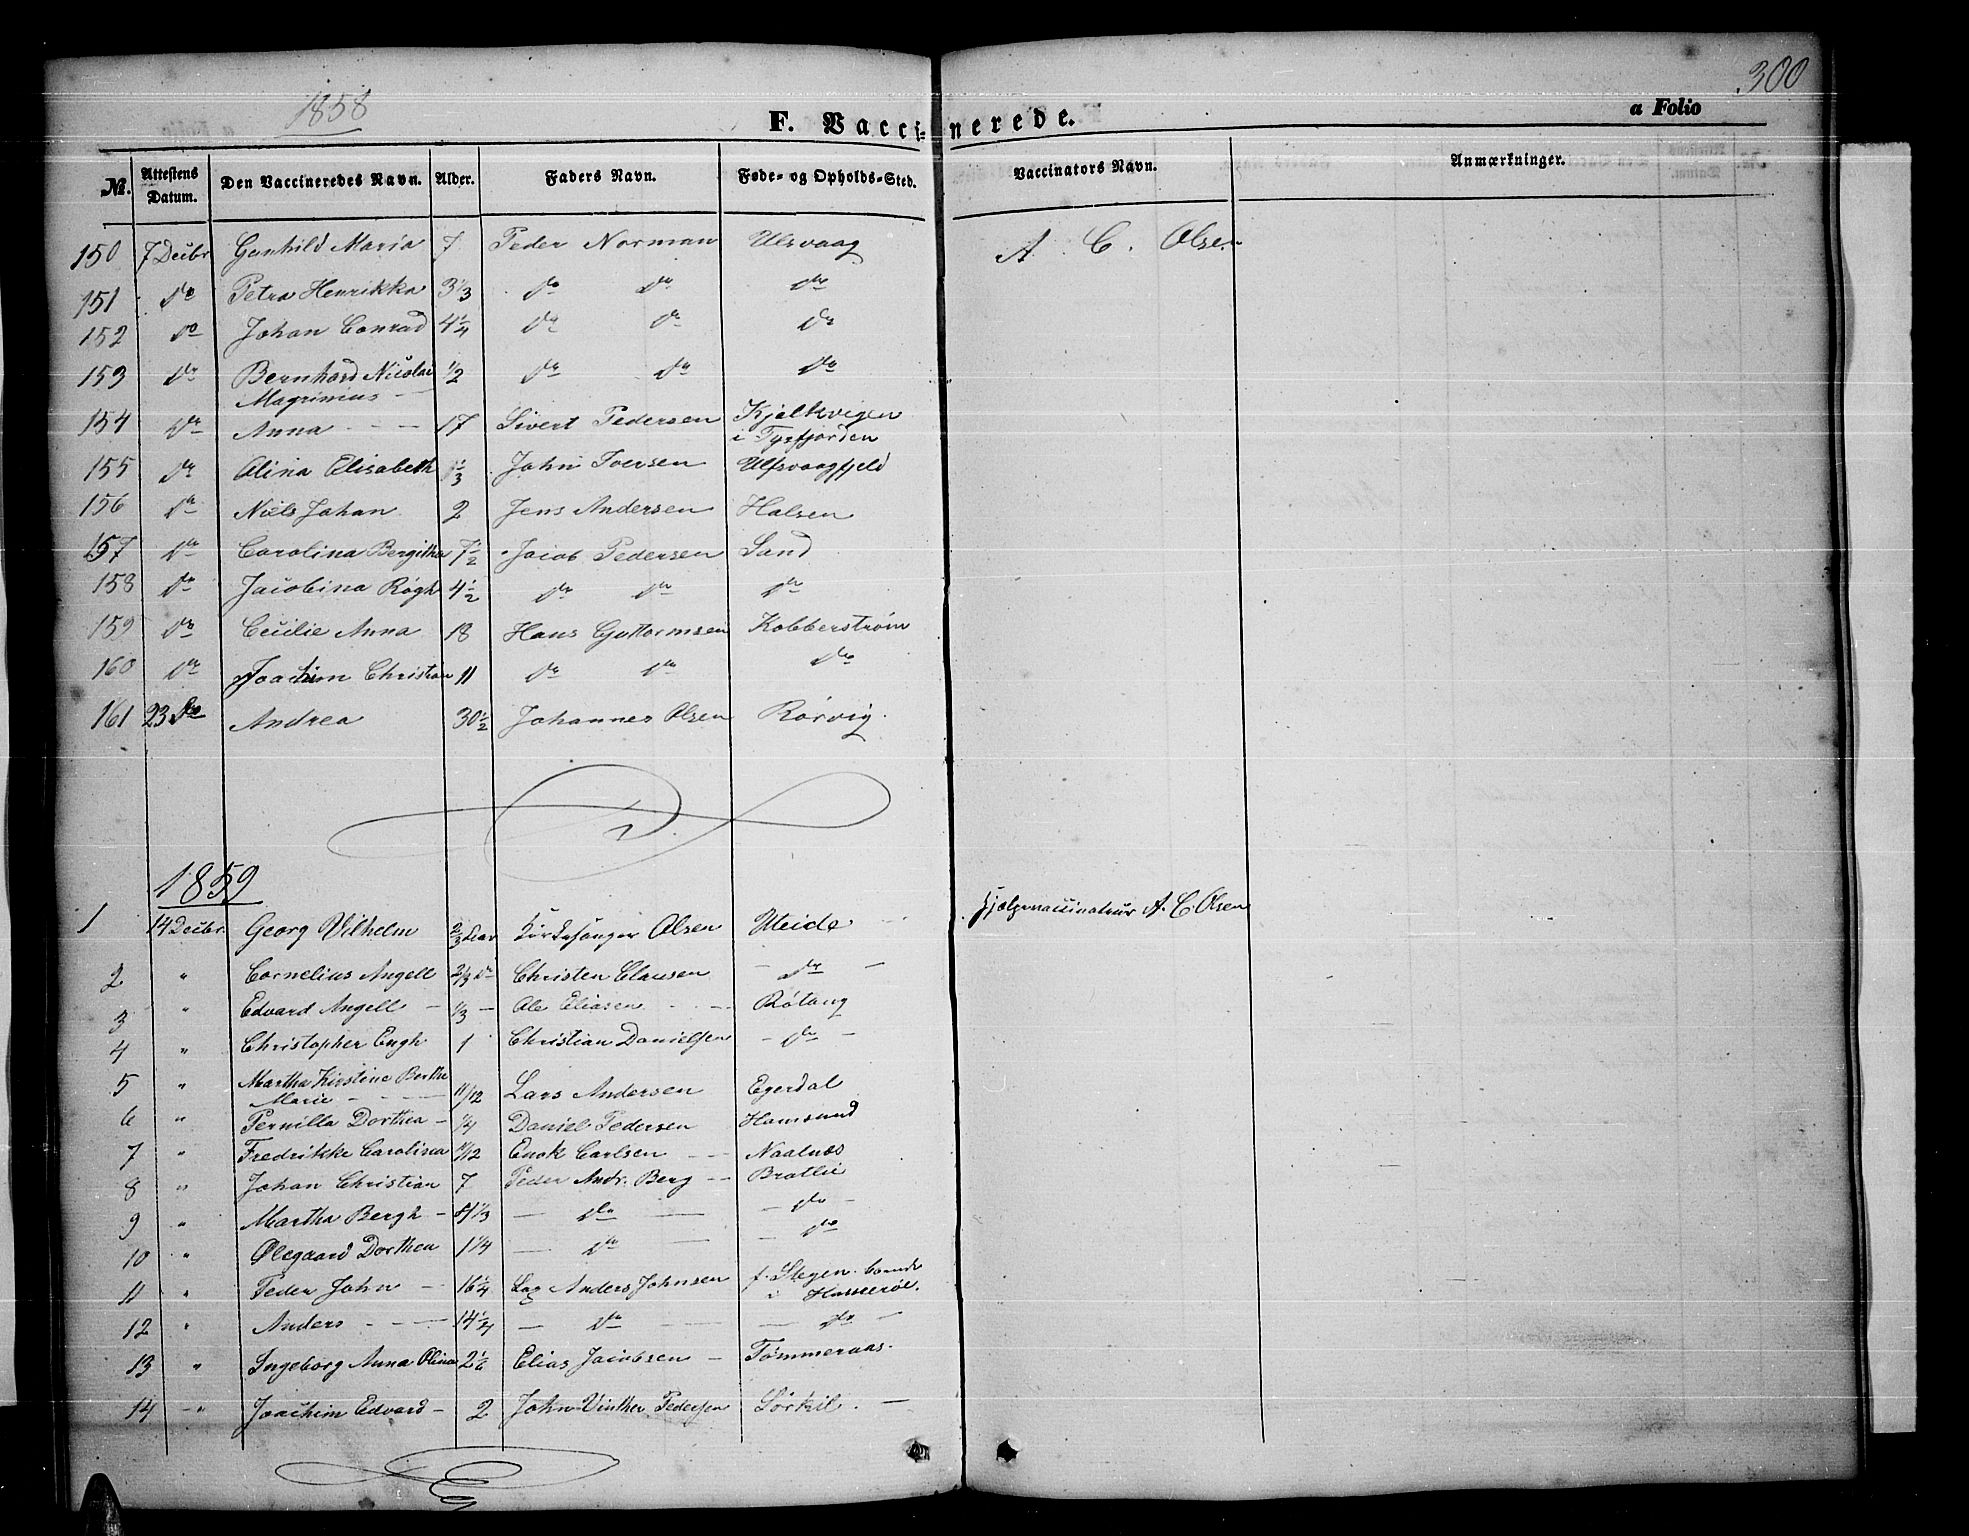 300
1858
F. Vaccinerede.
a Folio
No. Attestens Datum. Den Vaccineredes Navn. Alder. Faders Navn. Føde- og Opholds-Sted. Vaccinators Navn. Anmærkninger.
150 7 Decbr Gunhild Maria 7 Peder Norman Ulsvaag A. C. Olsen
151 do Petra Henrikka 3 1/3 do do do
152 do Johan Conrad 4 1/4 do do do
153 do Bernhard Nicolai 1/2 do do do
154 do Anna - - - 17 Sivert Pedersen Kjelkvigen
i Tysfjorden
155 do Olina Elisabeth John Iversen Ulfsvaagfjeld
156 do Niels Johan 2 Jens Andersen Halsen
157 do Carolina Bergitha 7 1/2 Jacob Pedersen Sand
158 do Jacobina Røgh 4 1/2 do do do
159 do Cecilie Anna 18 Hans Guttormsen Kobberstrøm
160 do Joachim Christian 11 do do do
161 23 do Andrea 30 1/2 Johannes Olsen Rørvig.
1859
1 14 Decbr. Georg Vilhelm 2/3 Kirkesanger Olsen Meide - Hjælpevaccinateur A. C. Olsen
2 " Cornelius Angell 2/3 do Christen Clausen - do -
3 " Edvard Angell - 1/3 - Ole Eliasen - - Røtang
4 " Christopher Engh 1 Christian Danielsen - do -
5 " Martha Kirstine Berthe 11/12 Lars Andersen Egerdal
Marie - - -
6 " Pernilla Dorthea - 1/4 Daniel Pedersen Hamsund
7 " Fredrikke Carolina Enok Carlsen - - Naalnæs
8 " Johan Christian 7 Peder Andr. Berg - - Bratlie
9 " Martha Bergh - - do - - do -
10 " Olegaard Dorthea 1 1/4 - do - - do
11 " Peder John - 16 1/4 Lap Anders Johnsen f. Stegen boende
i
12 " Anders - - - 14 1/4 - do - - do -
13 " Ingeborg Anna Olina 2 1/6 Elias Jacobsen - Tømmeraas.
14 - " Joachim Edvard - 2 John Vinther Pedersen Sørkil. -